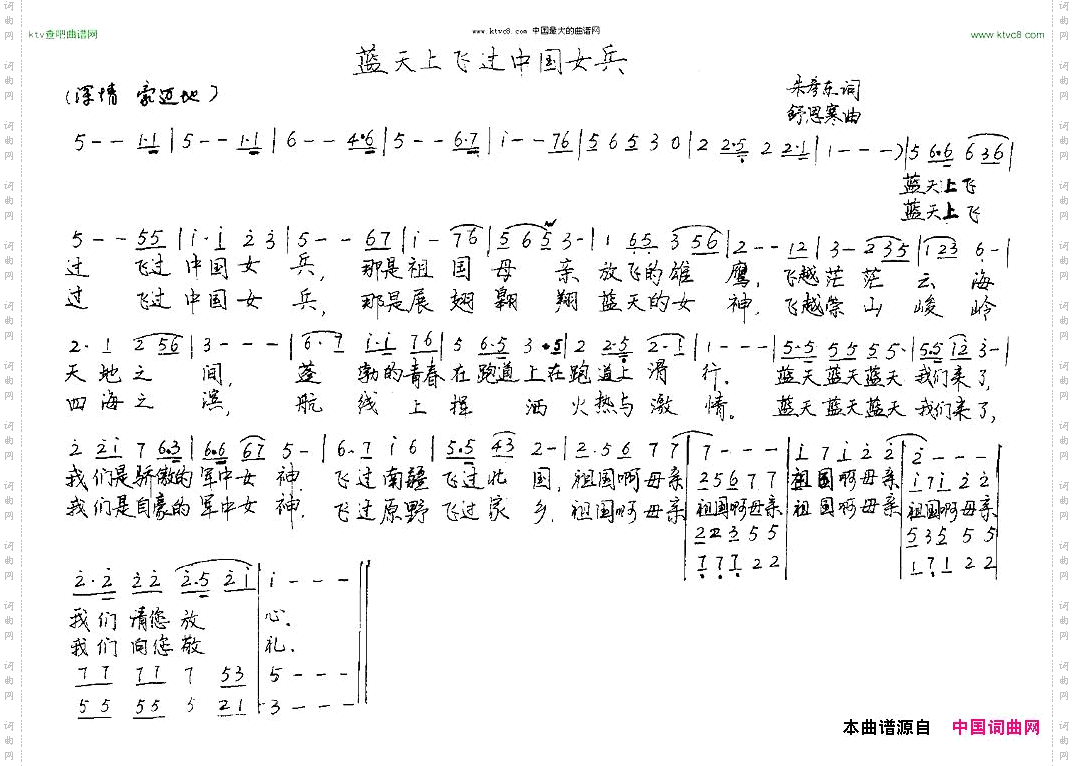 ktv查吧曲谱网
www.ktvc8.com 中国最大的曲谱网
www.ktvc8.com
蓝天上飞过中国女兵
(深情 豪迈地)
朱彦东词
舒恩寒曲
5 - - 1·1 | 5 - - 1·1 | 6 - - 4·6 | 5 - - 6·7 | i - - 76 | 5 6 5 3 0 | 2 2·5 2 2·1 | 1 - - -) | 5 6·6 6 36 |
蓝天上飞
蓝天上飞
5 - - 55 | i· i 2 3 | 5 - - 67 | i - 76 | 5 6 5 3 - | 1 65 3 56 | 2 - - 12 | 3 - 2 35 | 123 6 - |
过 飞过中国女 兵, 那是祖 国 母 亲 放飞的雄 鹰, 飞越茫 茫 云 海
过 飞过中国女 兵, 那是展 翅 翱 翔 蓝天的女 神, 飞越崇 山 峻 岭
2· 1 2 56 | 3 - - - | 6· 7 i·i 76 | 5 6·5 3 ·5 | 2 2·5 2·1 | 1 - - - | 5·5 55 55· | 55 12 3 - |
天地之 间, 蓬 勃的青春在跑道上在跑道上滑 行. 蓝天蓝天蓝天 我们来了,
四海之 滨, 航 线上挥 洒火热与激 情。 蓝天蓝天蓝天 我们来了,
2 2i 7 6·3 | 6·6 67 5 - | 6· 7 i 6 | 5·5 43 2 - | 2·5 6 7 7 | 7 - - - | i 7 i 2 2 | 2 - - - |
我们是骄傲的 军中女 神. 飞过南疆飞过北 国, 祖国啊母亲 2 5 6 7 7 祖国啊母亲 i 7 i 2 2
我们是自豪的 军中女 神. 飞过原野飞过家 乡, 祖国啊母亲 祖国啊母亲 祖国啊母亲 祖国啊母亲
2 2 3 5 5 5 3 5 5 5
7 7 7 2 2 1 7 1 2 2
2·2 22 2·5 2i | i - - - ‖
我们 请您放 心.
我们 向您敬 礼.
77 77 7 53 | 5 - - -
55 55 5 21 | 3 - - -
本曲谱源自 中国词曲网